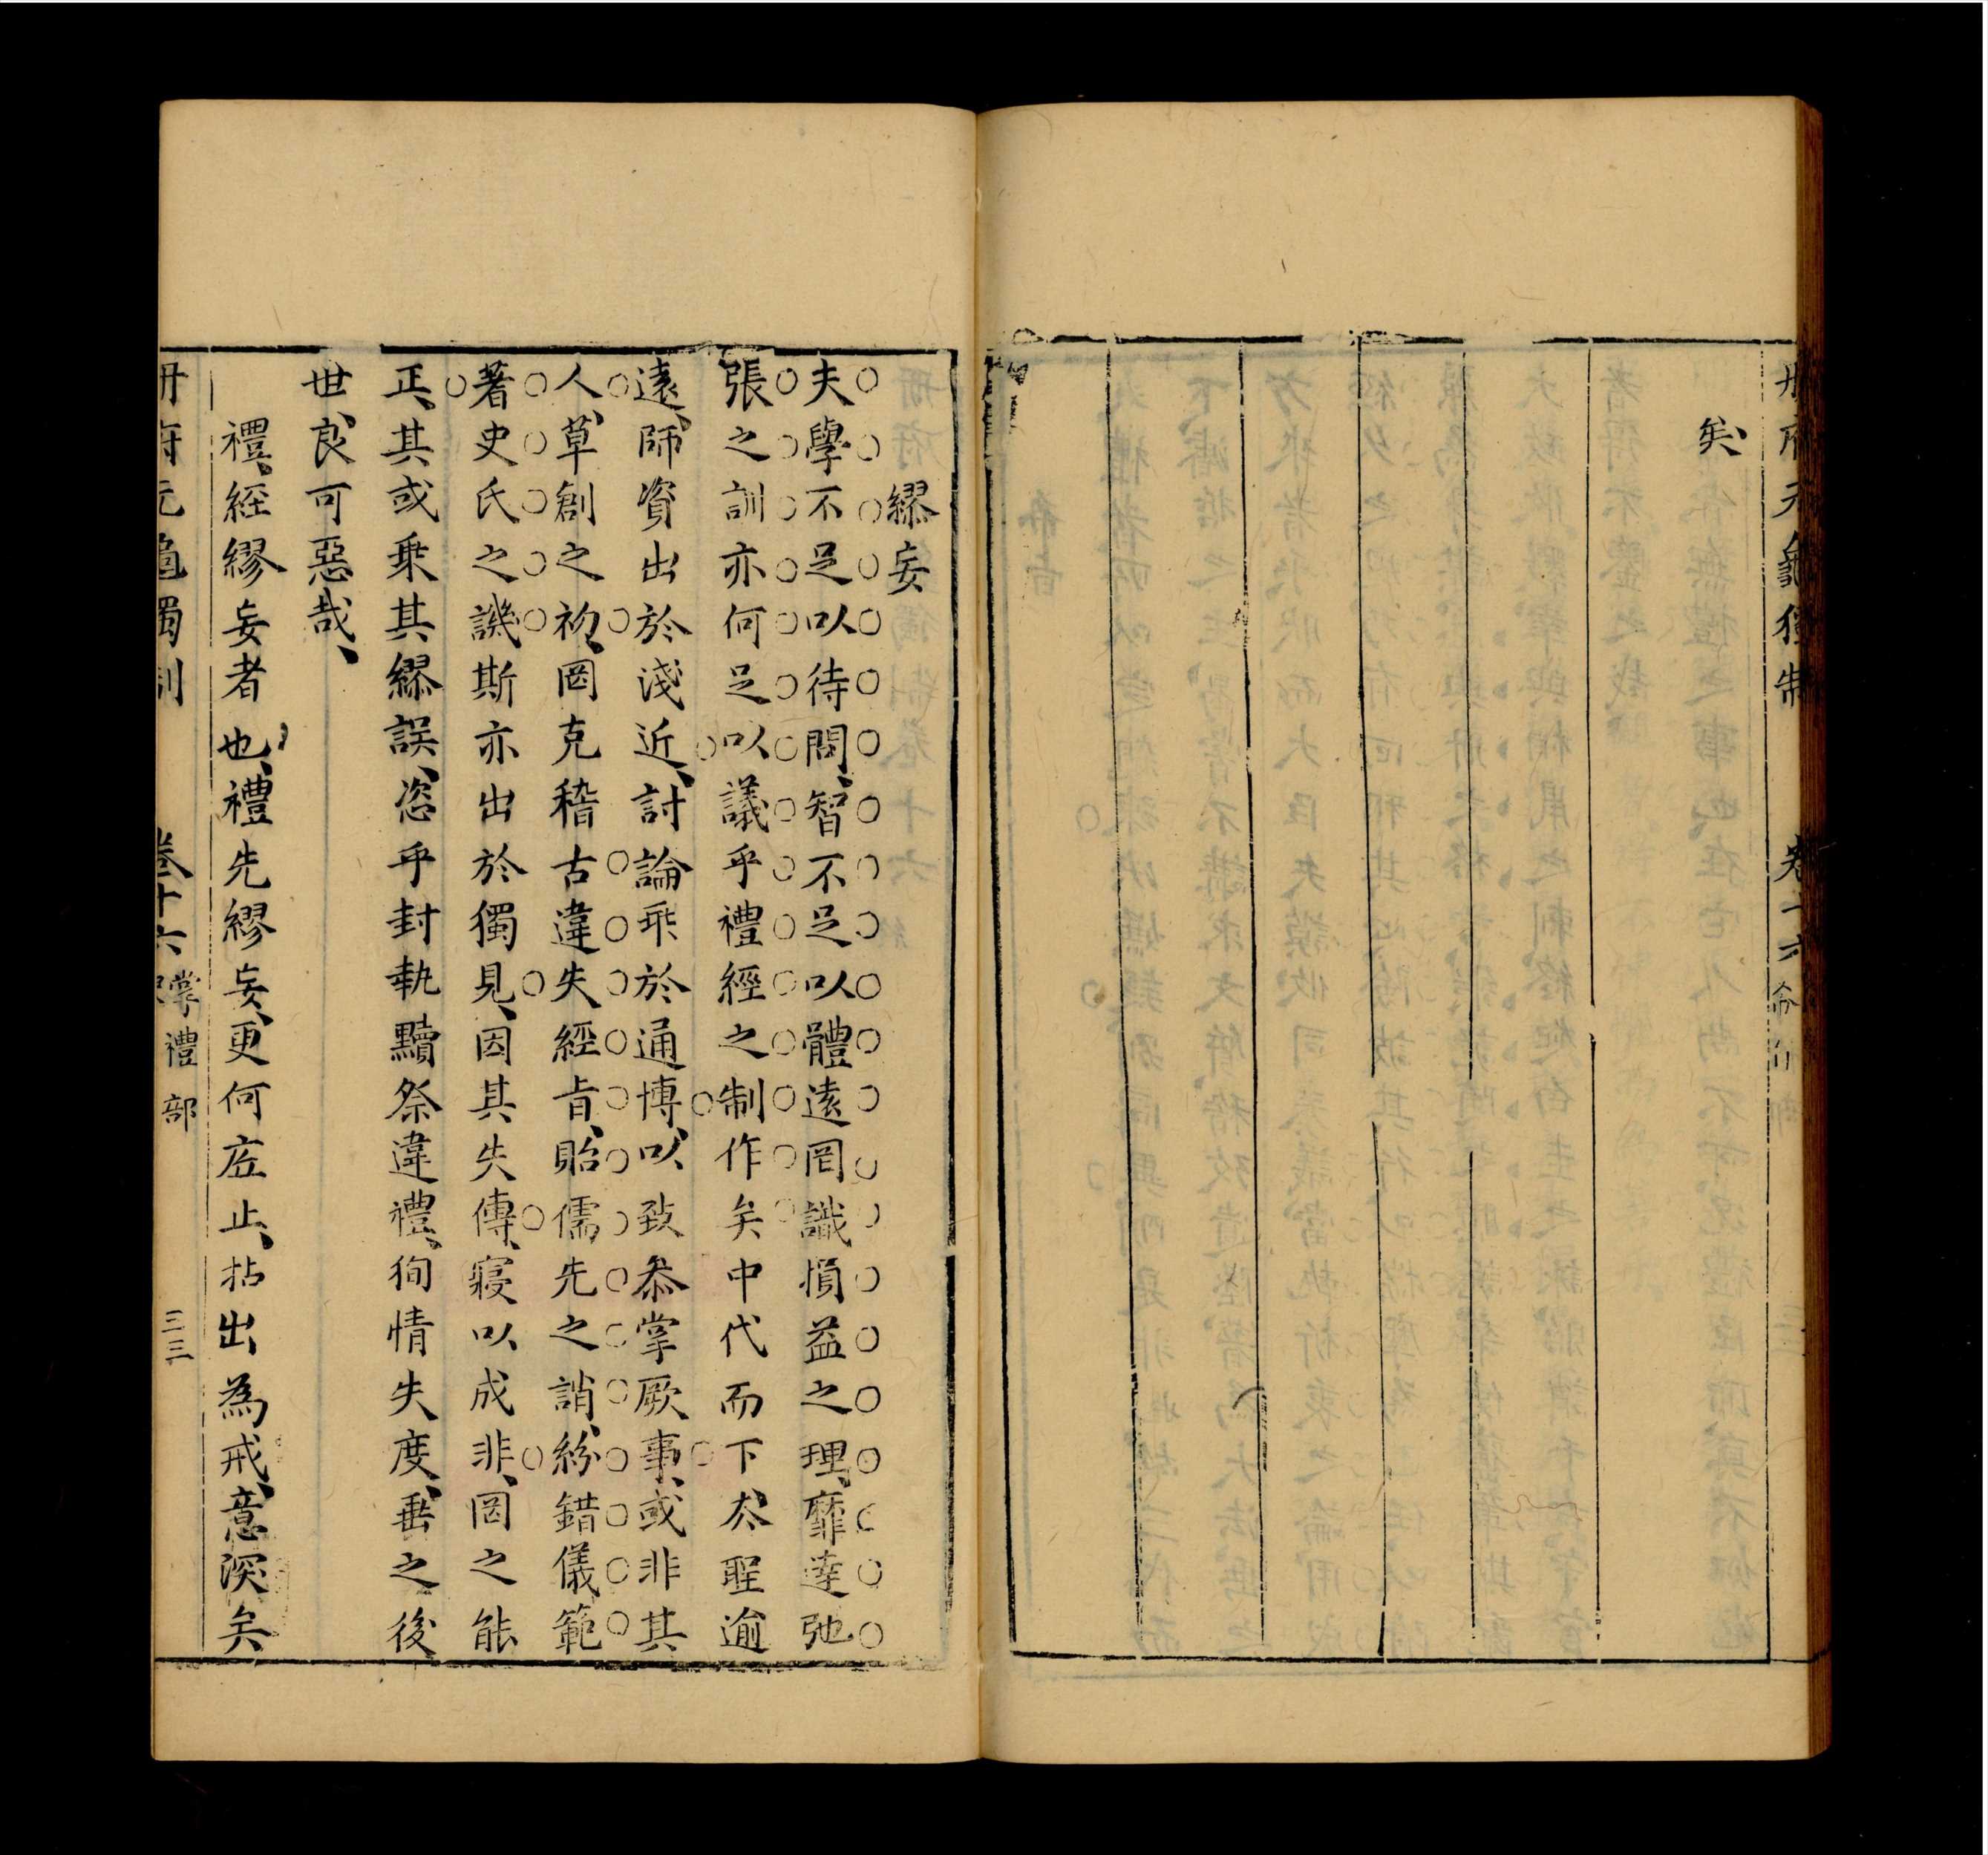 冊府元龜獨制 卷十六
矣、
繆妄
夫學不足以待問、智不足以體遠罔識損益之理、靡達弛
張之訓亦何足以議乎禮經之制作矣中代而下、厺聖逾
遠、師資出於淺近、討論乖於通博、以致叅掌厥事、或非其
人、草創之初、罔克稽古違失經㫖、貽儒先之誚、紛錯儀範
著史氏之譏斯亦出於獨見、因其失傳、寢以成非、罔之能
正、其或乗其繆誤、恣乎封執黷祭違禮、徇情失度、垂之後
世、良可惡哉、
禮、經繆妄者也、禮先繆妄、更何底止、拈出為戒、意深矣
冊府元龜獨制 卷十六 掌禮部 三三